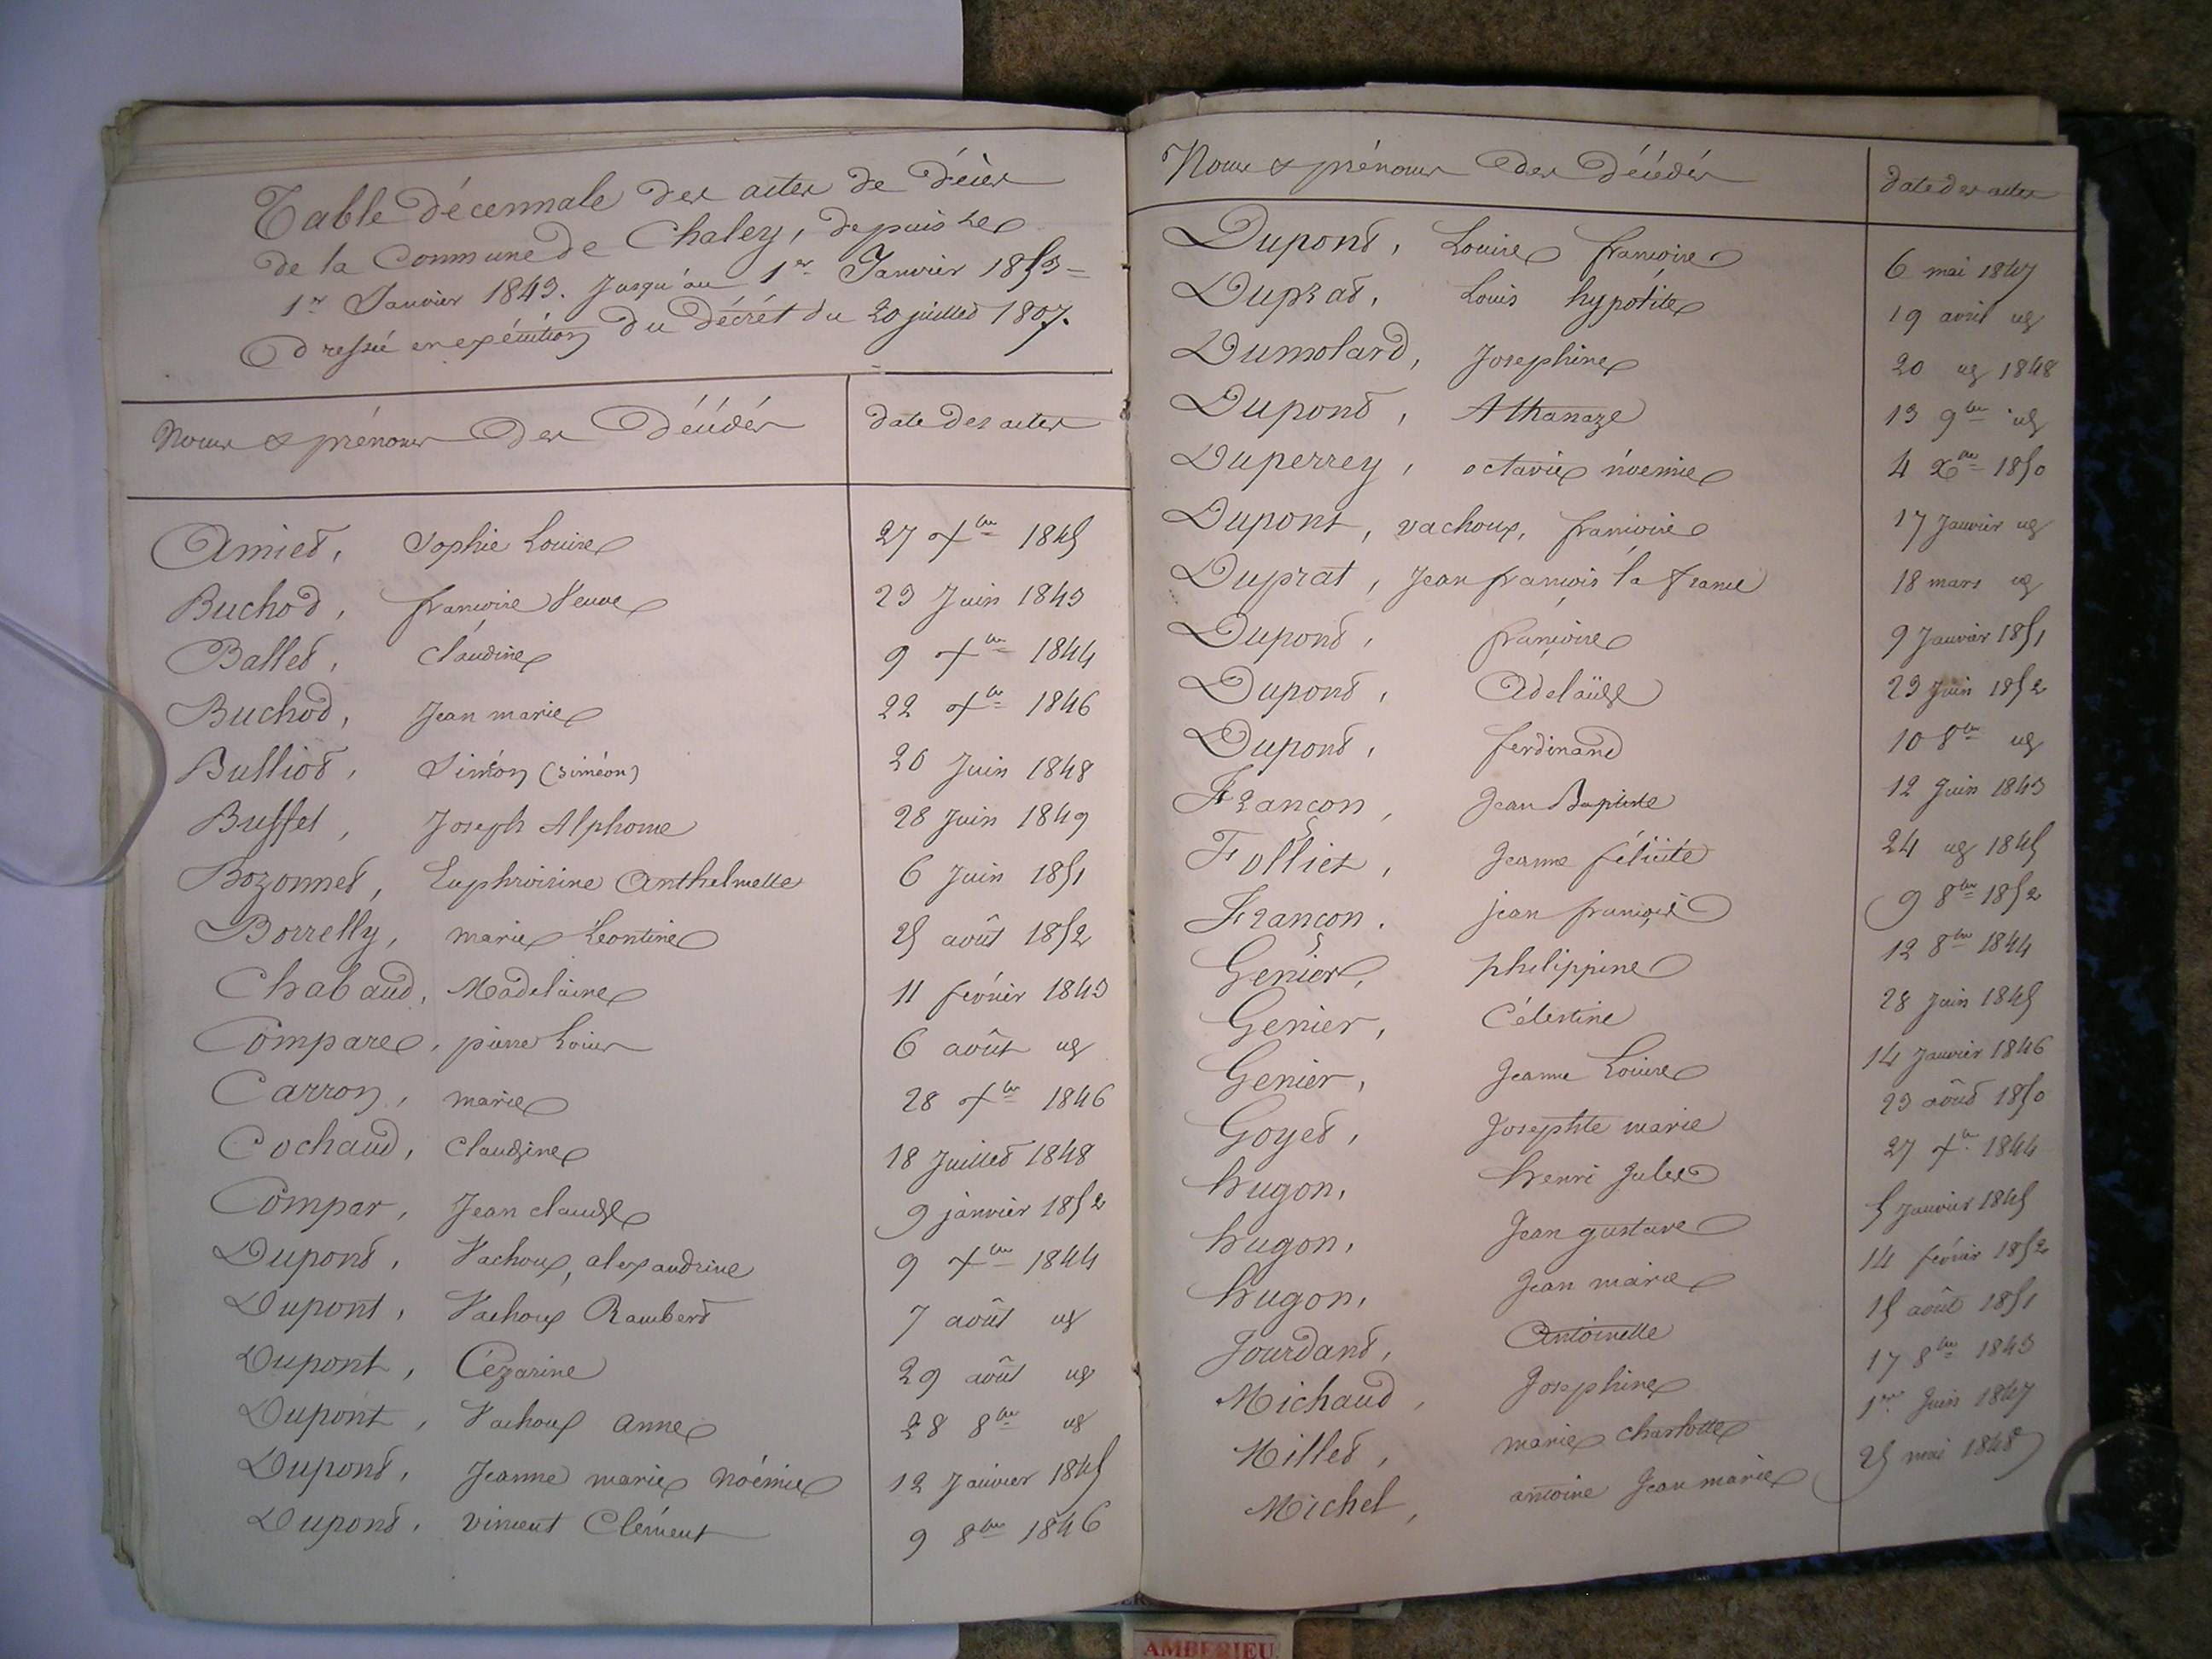 Table décennale des actes de décès
de la Commune de Chaley, depuis le
1er Janvier 1843. Jusqu'au 1er Janvier 1853 =
dressée en exécution du Décrét du 20 juillet 1807.
Noms & prénoms Des Décédés date des actes
Amiet, Sophie Louise 27 Xbre 1845
Buchod, françoise Veuve 23 Juin 1843
Ballet, claudine 9 Xbre 1844
Buchod, Jean marie 22 Xbre 1846
Bulliot, Siméon (siméon) 20 Juin 1848
Buffet, Joseph Alphonse 28 Juin 1849
Bozonnet, Euphroisine Anthelmette 6 Juin 1851
Borrelly, marie Léontine 25 août 1852
Chabaud, Madelaine 11 février 1843
Compare, pierre Louis 6 août id
Carron, marie 28 Xbre 1846
Cochaud, Claudine 18 Juillet 1848
Compar, Jean claude 9 janvier 1852
Dupont, Vachoux, alexandrine 9 Xbre 1844
Dupont, Vachoux Rambert 7 août id
Dupont, Cézarine 29 août id
Dupont, Vachoux anne 28 8bre id
Dupont, Jeanne marie Noémie 12 Janvier 1845
Dupont, vincent Clément 9 8bre 1846
Noms & prénoms des Décédés date des actes
Dupont, Louise françoise 6 mai 1847
Duprat, Louis hypolite 19 avril id
Dumolard, Josephine 20 id 1848
Dupont, Athanaze 13 9bre id
Duperrey, octavie noémie 4 Xbre 1850
Dupont, vachoux, françoise 17 Janvier id
Duprat, Jean françois la france 18 mars id
Dupont, françoise 9 Janvier 1851
Dupont, Adelaïde 23 Juin 1852
Dupont, ferdinand 10 8bre id
Françon, Jean Baptiste 12 Juin 1843
Folliet, Jeanne félicité 24 id 1845
Françon, jean françois 9 8bre 1852
Genier, philippine 12 8bre 1844
Genier, Célestine 28 Juin 1845
Genier, Jeanne Louise 14 Janvier 1846
Goyet, Josephte marie 23 août 1850
hugon, henri Jules 27 Xbre 1844
hugon, Jean gustave 5 Janvier 1845
hugon, Jean marie 14 février 1852
Jourdant, Antoinette 15 août 1851
Michaud, Josephine 17 8bre 1843
Millet, marie charlotte 1er Juin 1847
Michel, antoine Jean marie 25 mai 1848
AMBERIEU